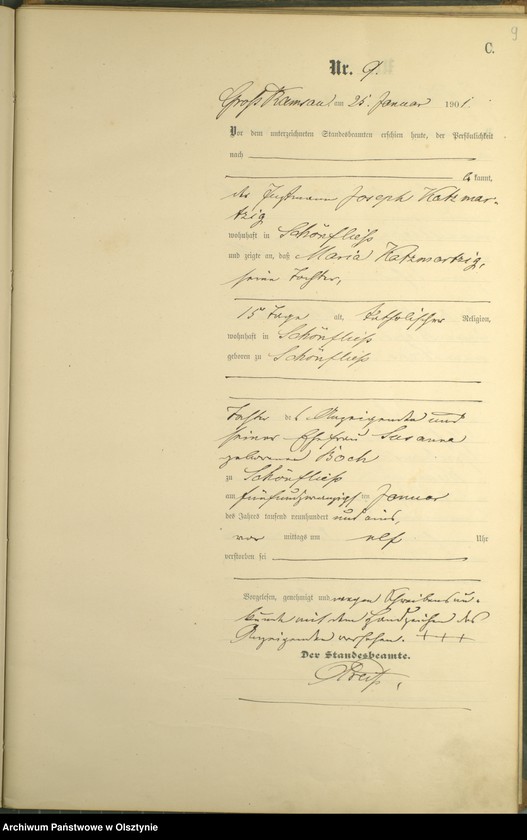 9
C.
Nr. 9.
Groß Ramsau am 25. Januar 1901.
Vor dem unterzeichneten Standesbeamten erschien heute, der Persönlichkeit
nach
kannt,
der Joseph Katzmar-
tzig
wohnhaft in Schönfließ
und zeigte an, daß Maria Katzmartzig,
seine Tochter,
15 Tage alt, katholischer Religion,
wohnhaft in Schönfließ
geboren zu Schönfließ
Tochter des Anzeigenden und
seiner Ehefrau Susanna
geborenen Boch
zu Schönfließ
am fünfundzwanzigsten Januar
des Jahres tausend neunhundert und eins,
vor mittags um elf Uhr
verstorben sei
Vorgelesen, genehmigt und wegen Schreibensun-
kunde mit dem Handzeichen des
Anzeigenden versehen. +++
Der Standesbeamte.
Archiwum Państwowe w Olsztynie